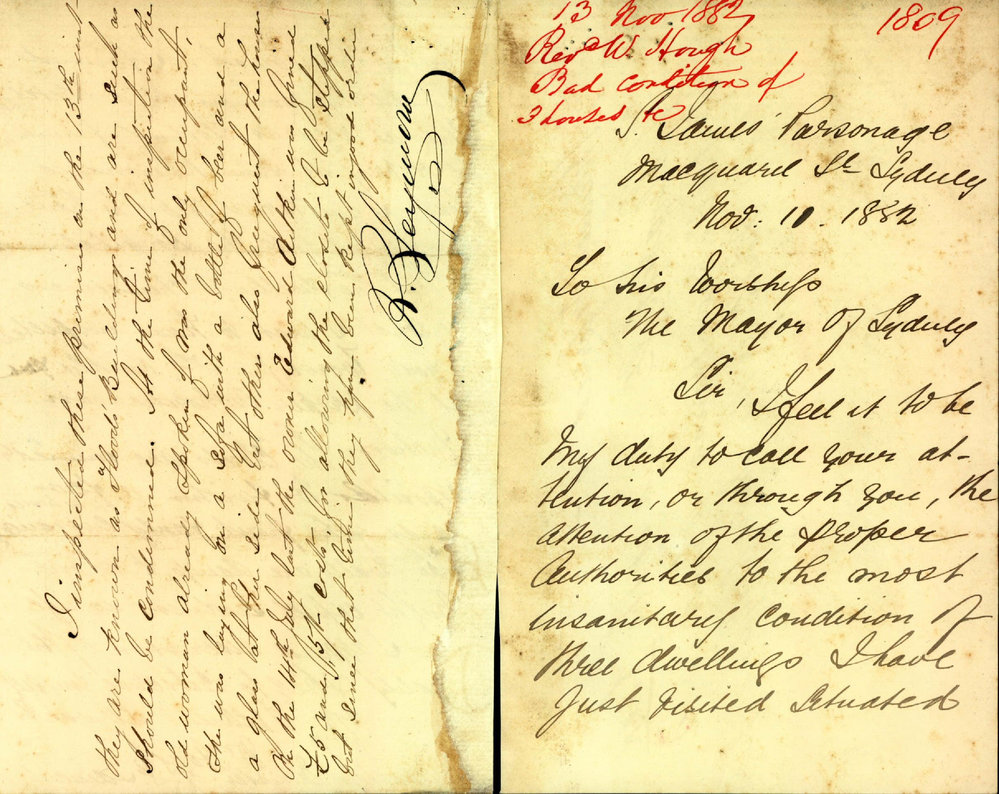 I inspected these premises on the 13th inst
they are known as Hoods Buildings and are such as
should be condemned. At the time of inspection the
old woman already spoken of was the only occupant,
She was laying on a sofa with a bottle of beer and a
a glass but her side but others also frequent the house
On the 14th July last the owner Edward Atkin was fined
£5 and 5/- costs for allowing the closets to be stopped
but since that time they have been kept in good order
R. Seymour
13 Nov. 1882
1809
Revd W. Hough
Bad condition of
3 houses &c
St James' Parsonage
Macquarie St Sydney
Nov: 10. 1882
To his Worship
The Mayor of Sydney
Sir, I feel it to be
my duty to call your at-
tention, or through you, the
attention of the proper
Authorities to the most
insanitary condition of
three dwellings I have
just visited situated